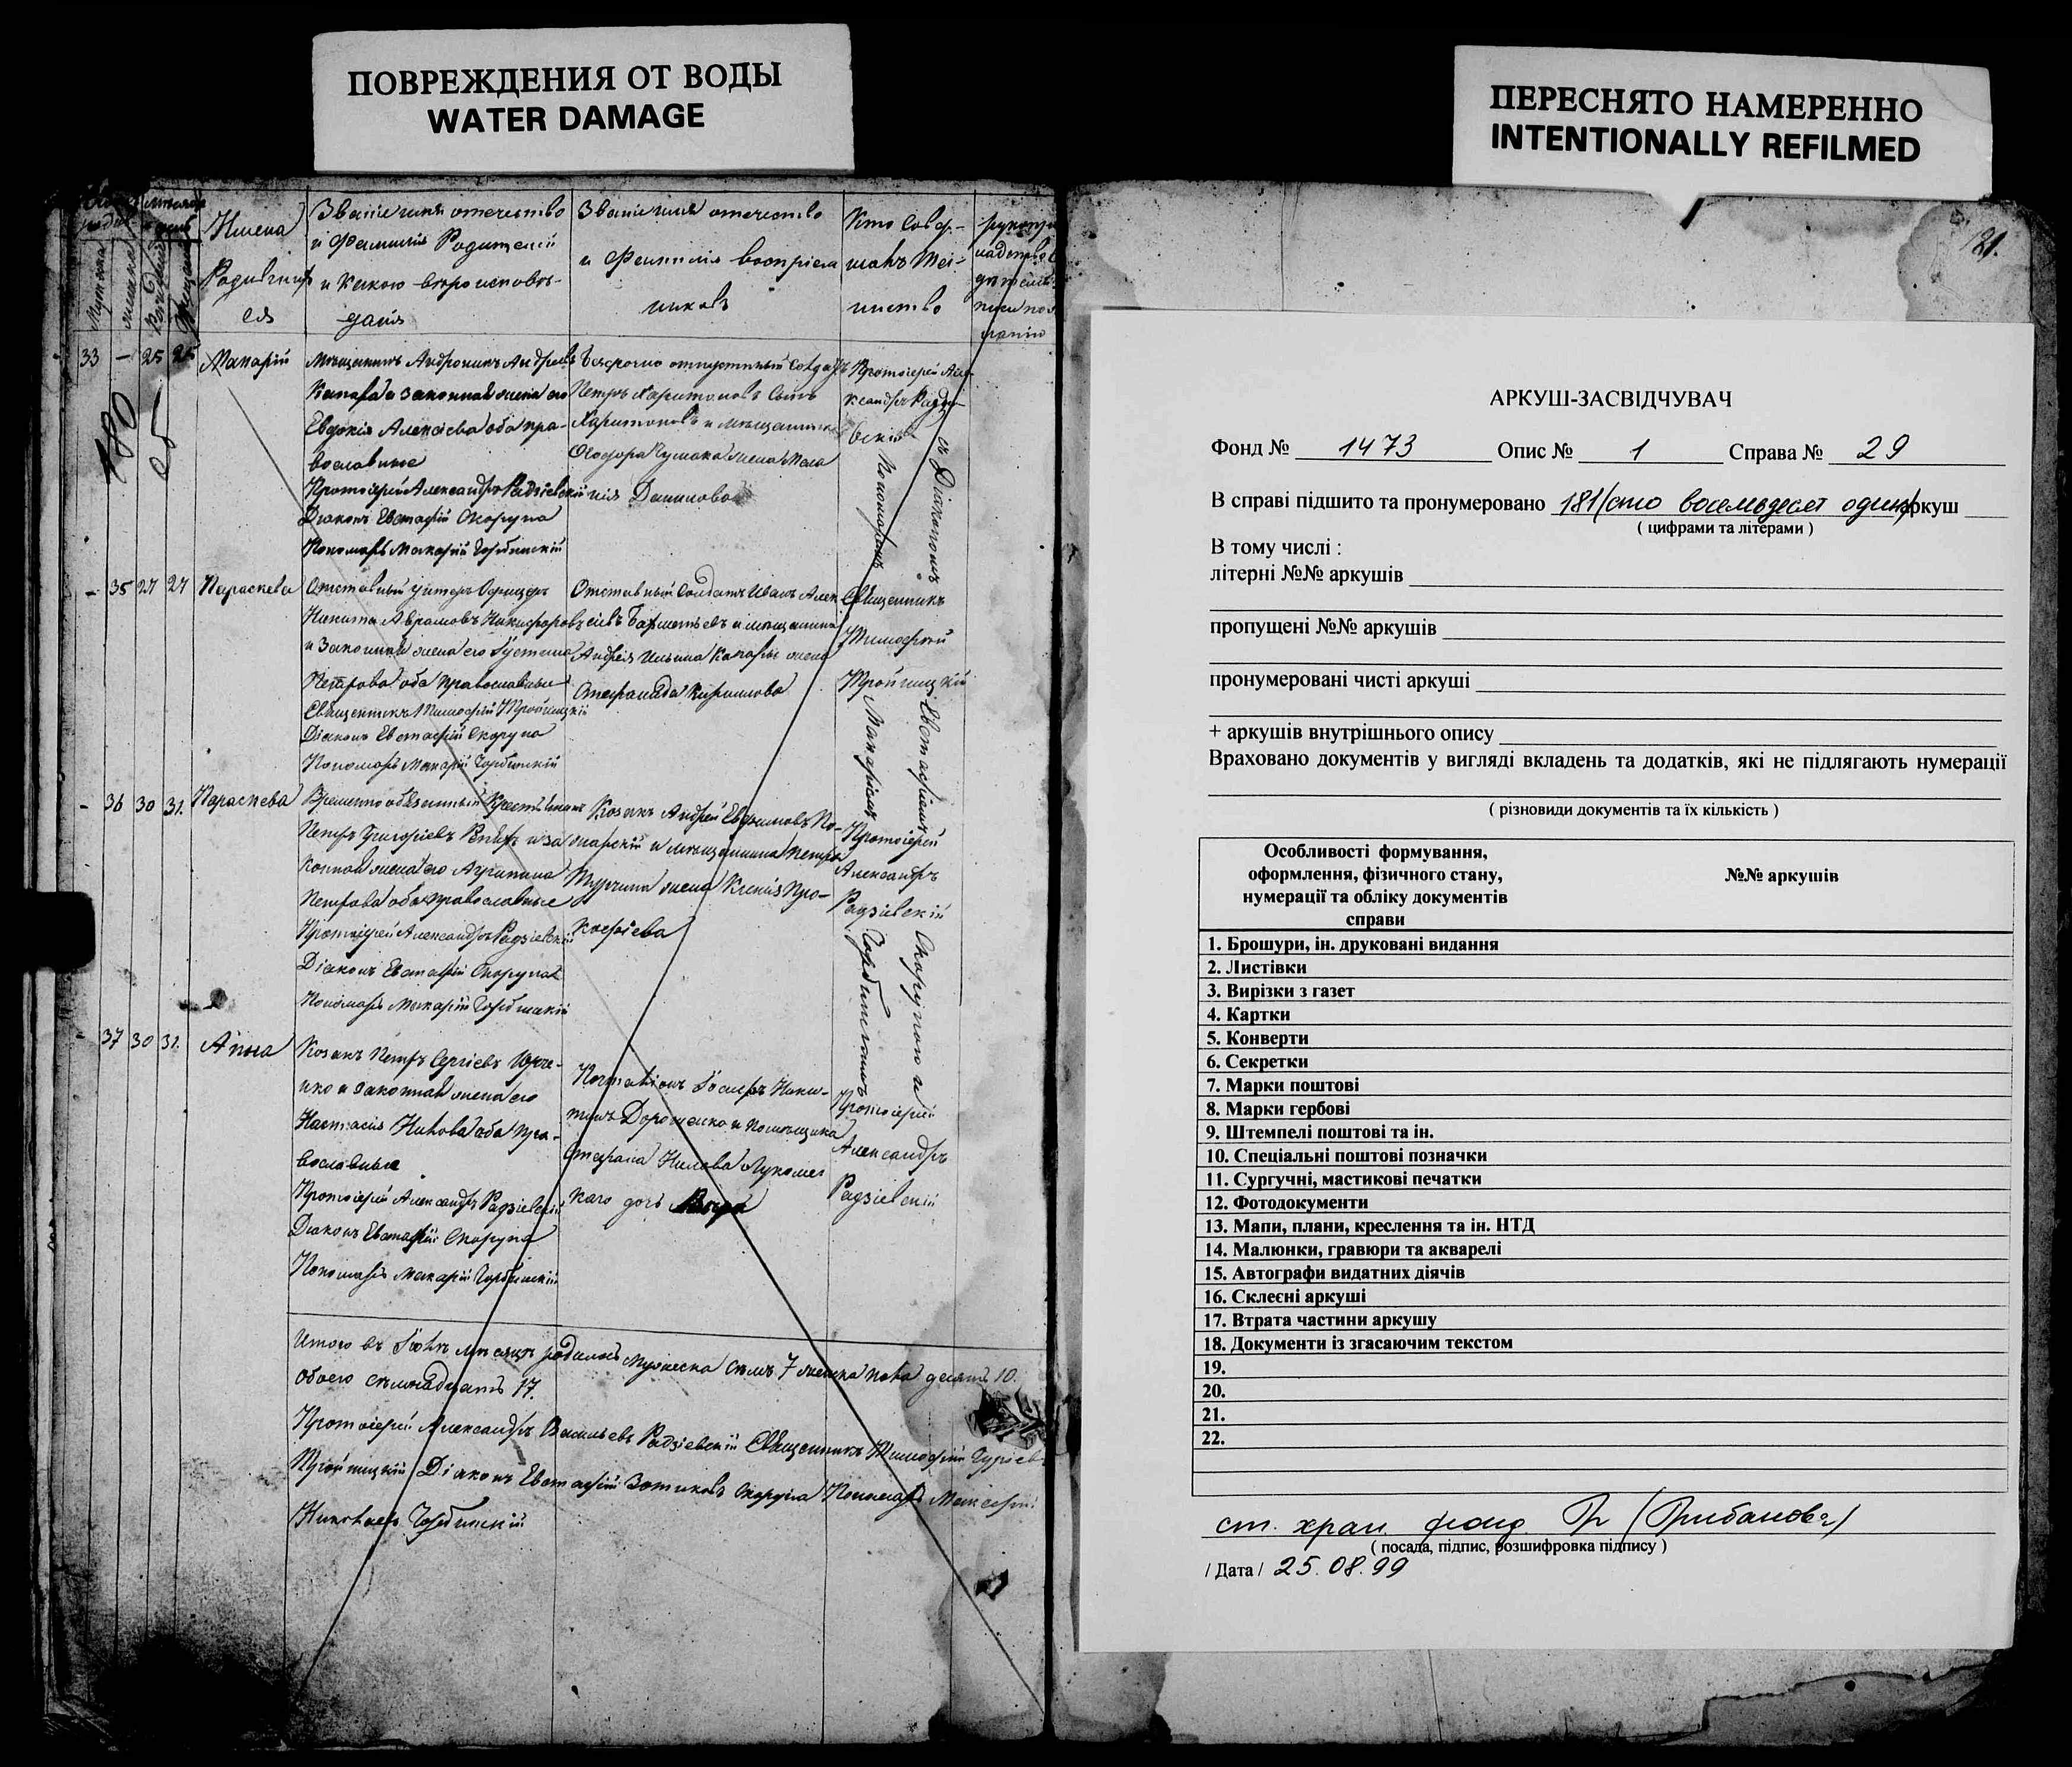 ПОВРЕЖДЕНИЯ ОТ ВОДЫ
WATER DAMAGE
ПЕРЕСНЯТО НАМЕРЕННО
INTENTIONALLY REFILMED
Имена
Родивших
ся
Звание имя отечество
и Фамилия Родителей
и какого вероисповѣ-
дания
Звание имя отечество
и Фамилия восприем
никовъ
Кто совер-
шалъ Таи-
инство
33 — 25 25
Макарій
180
об
Мѣщанинъ Андроникъ Андреевъ
и законная жена его
Евдокія Алексіева оба пра-
вославные
Протоіерей Александръ Радзіевскій
Діаконъ Евстафій Скорупа
Пономарь Макарій Горбинскій
Безсрочно отпускный Солдатъ
Петръ Харитоновъ сынъ
Харитоновъ и мѣщанина
жена Мела
нія Данилова
Протоіерей Але-
ксандръ Радзі-
вскій
съ Діакономъ Евстафіемъ Скорупою и
Пономаремъ Макаріемъ Горбинскимъ
- 35 27 27
Параскева
Отставный Унтеръ Офицеръ
Никита Аврамовъ Никифоровъ
и законная жена его Іустина
Петрова оба православные
Священникъ Тимофей Тройницкій
Діаконъ Евстафій Скорупа
Пономарь Макарій Горбинскій
Отставный Солдатъ Иванъ Алек
сіевъ и мѣщанина
Андрея Ильина жена
Стефанида Кирилова
Священникъ
Тимофей
Тройницкій
- 36 30 31.
Параскева
Временно обязанный Крестьянинъ
Петръ Григоріевъ и за
конная жена его Агрипина
Петрова оба православные
Протоіерей Александръ Радзіевскій
Діаконъ Евстафій Скорупа
Пономарь Макарій Горбинскій
Козакъ Андрей Евфимовъ По-
жарскій и мѣщанина Петра
жена Ксенія Про-
кофіева
Протоіерей
Александръ
Радзіевскій
- 37 30 31.
Анна
Козакъ Петръ Сергіевъ Юрче-
нко и законная жена его
Настасія оба пра-
вославные
Протоіерей Александръ Радзіевскій
Діаконъ Евстафій Скорупа
Пономарь Макарій Горбинскій
Іосифъ Ники-
тинъ Дорошенко и Помѣщика
Стефана Нилова Лукомс
каго дочь
Протоіерей
Александръ
Радзіевскій
Итого въ Іюлѣ мѣсяцѣ родилось мужеска семь 7 женска пола десять 10.
обоего семнадцать 17.
Протоіерей Александръ Васильевъ Радзіевскій Священникъ Тимофій Гуріевъ
Тройницкій Діаконъ Евстафій Зотиковъ Скорупа Пономарь Макарій
Николаевъ Горбинскій
181.
АРКУШ-ЗАСВІДЧУВАЧ
Фонд № 1473 Опис № 1 Справа № 29
В справі підшито та пронумеровано 181/сто восемьдесят один/ аркуш
( цифрами та літерами )
В тому числі :
літерні №№ аркушів
пропущені №№ аркушів
пронумеровані чисті аркуші
+ аркушів внутрішнього опису
Враховано документів у вигляді вкладень та додатків, які не підлягають нумерації
( різновиди документів та їх кількість )
Особливості формування,
оформлення, фізичного стану,
нумерації та обліку документів
справи
№№ аркушів
1. Брошури, ін. друковані видання
2. Листівки
3. Вирізки з газет
4. Картки
5. Конверти
6. Секретки
7. Марки поштові
8. Марки гербові
9. Штемпелі поштові та ін.
10. Спеціальні поштові позначки
11. Сургучні, мастикові печатки
12. Фотодокументи
13. Мапи, плани, креслення та ін. НТД
14. Малюнки, гравюри та акварелі
15. Автографи видатних діячів
16. Склеєні аркуші
17. Втрата частини аркушу
18. Документи із згасаючим текстом
19.
20.
21.
22.
ст. хран. фонд.
( посада, підпис, розшифровка підпису )
/ Дата / 25.08.99